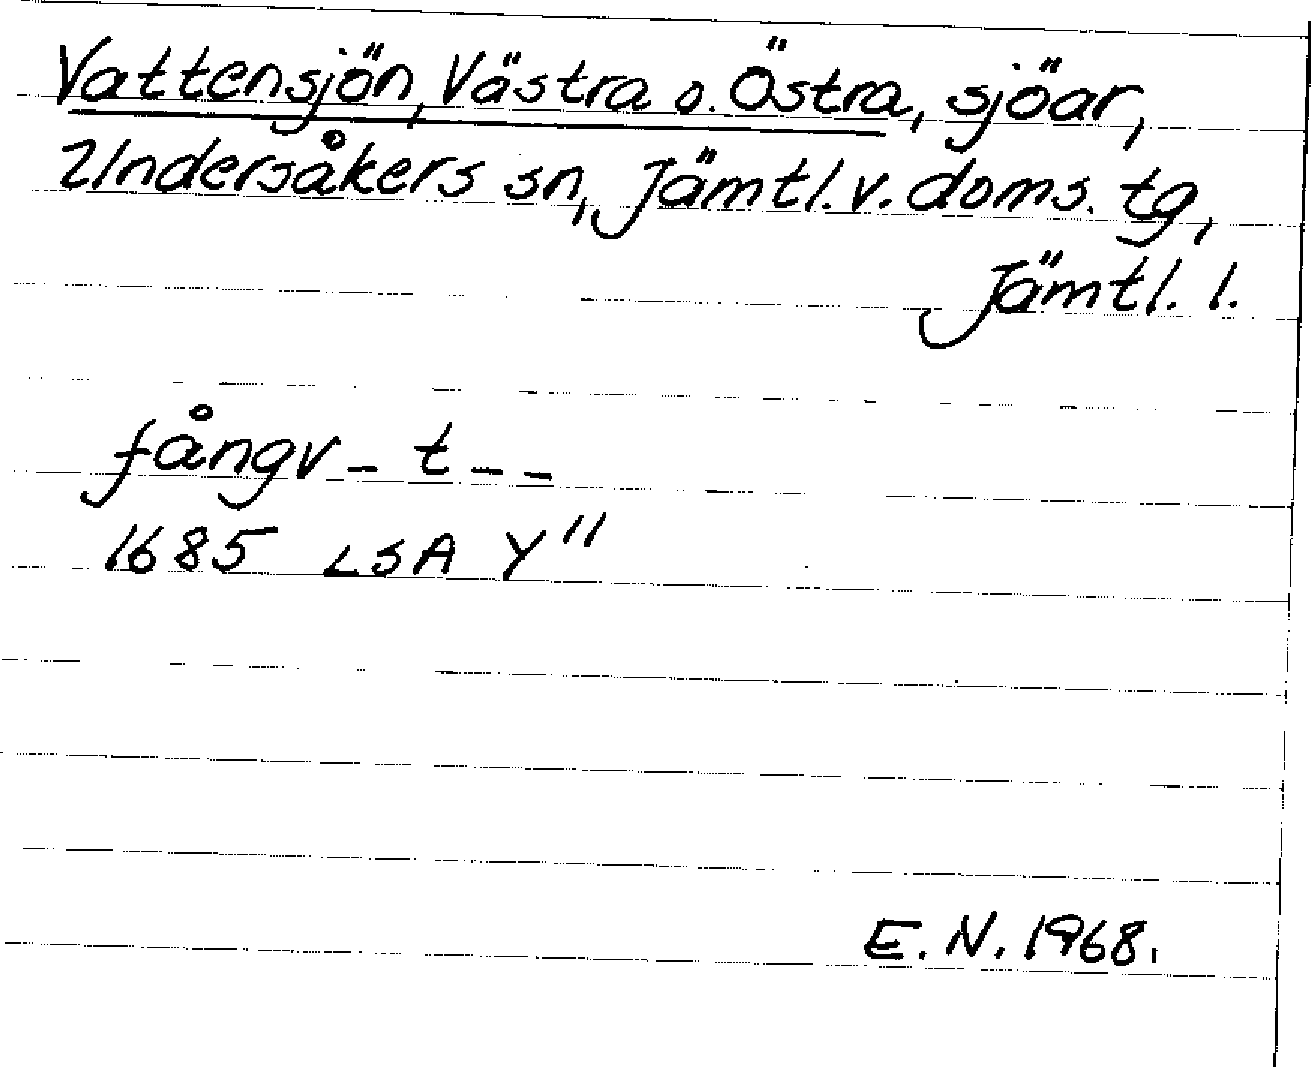 Vattensjön, Västra o. Östra, sjöar,
Undersåkers sn, Jämtl. v. doms. tg,
Jämtl. l.
fångv – t – –
1685 LSA Y"
E. N. 1968.